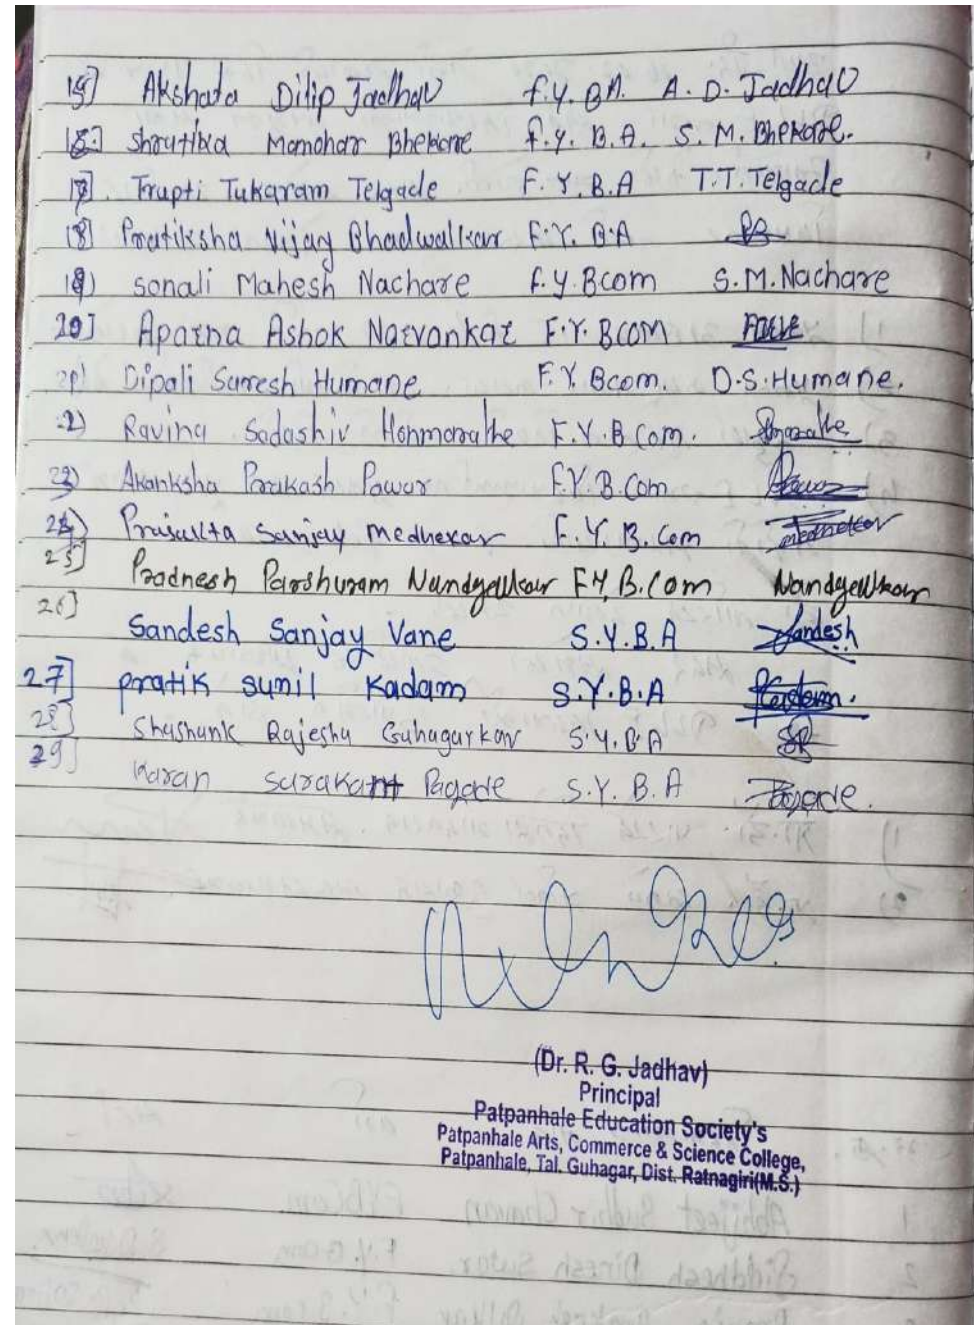 15] Akshata Dilip Jadhav F.Y. BA. A. D. Jadhav
16] Shrutika Manohar Bhekare F.Y. B.A. S. M. Bhekare.
17]. Trupti Tukaram Telgade F.Y.B.A T.T.Telgade
18] Pratiksha Vijay Bhadwalkar F.Y. B.A PB
19) Sonali Mahesh Nachare F.Y.Bcom S.M.Nachare
20] Aparna Ashok Narvankar F.Y. BCOM
21) Dipali Suresh Humane F.Y. Bcom. D.S.Humane.
22) Ravina Sadashiv Honmorathe F.Y.B Com.
23) Akanksha Prakash Pawar F.Y.B.Com Pawar
24) Prajakta Sanjay Medhekar F.Y.B.Com Medhekar
25] Pradnesh Parshuram Nandgavkar F.Y.B.Com Nandgavkar
26] Sandesh Sanjay Vane S.Y.B.A Sandesh
27] pratik sunil Kadam S.Y.B.A Kadam.
28] Shashank Rajesh Guhagarkar S.Y.B.A SR
29] Karan Surakant Pagade S.Y.B.A Pagade.
(Dr. R. G. Jadhav)
Principal
Patpanhale Education Society's
Patpanhale Arts, Commerce & Science College,
Patpanhale, Tal. Guhagar, Dist. Ratnagiri(M.S.)